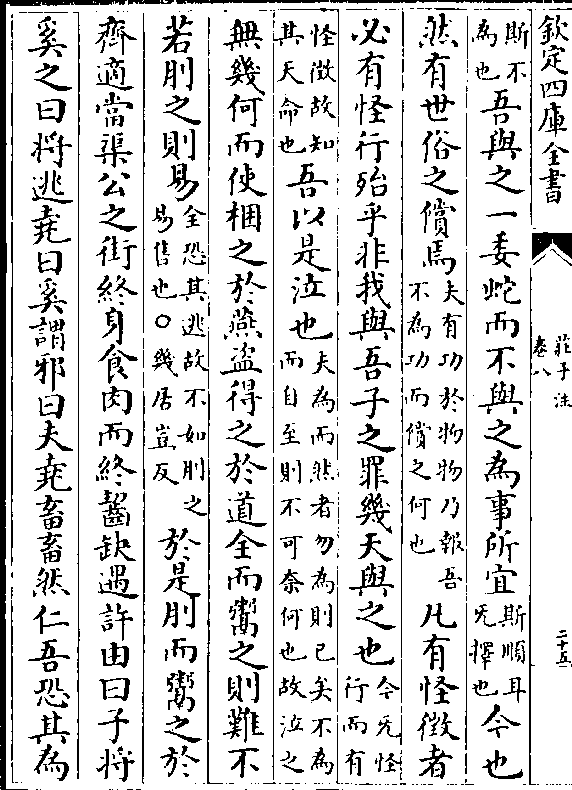 欽定四庫全書
莊子注
卷八
二十五
斯不為也吾與之一委蛇而不與之為事所宜斯順耳无擇也今也
然有世俗之償焉夫有功於物物乃報吾不為功而償之何也凡有怪徵者
必有怪行殆乎非我與吾子之罪幾天與之也今无怪行而有
怪徵故知其天命也吾以是泣也夫為而然者勿為則已矣不為而自至則不可奈何也故泣之
無幾何而使梱之於燕盜得之於道全而鬻之則難不
若刖之則易全恐其逃故不如刖之易售也○幾居豈反於是刖而鬻之於
齊適當渠公之街終身食肉而終齧缺遇許由曰子將
奚之曰將逃堯曰奚謂邪曰夫堯畜畜然仁吾恐其為